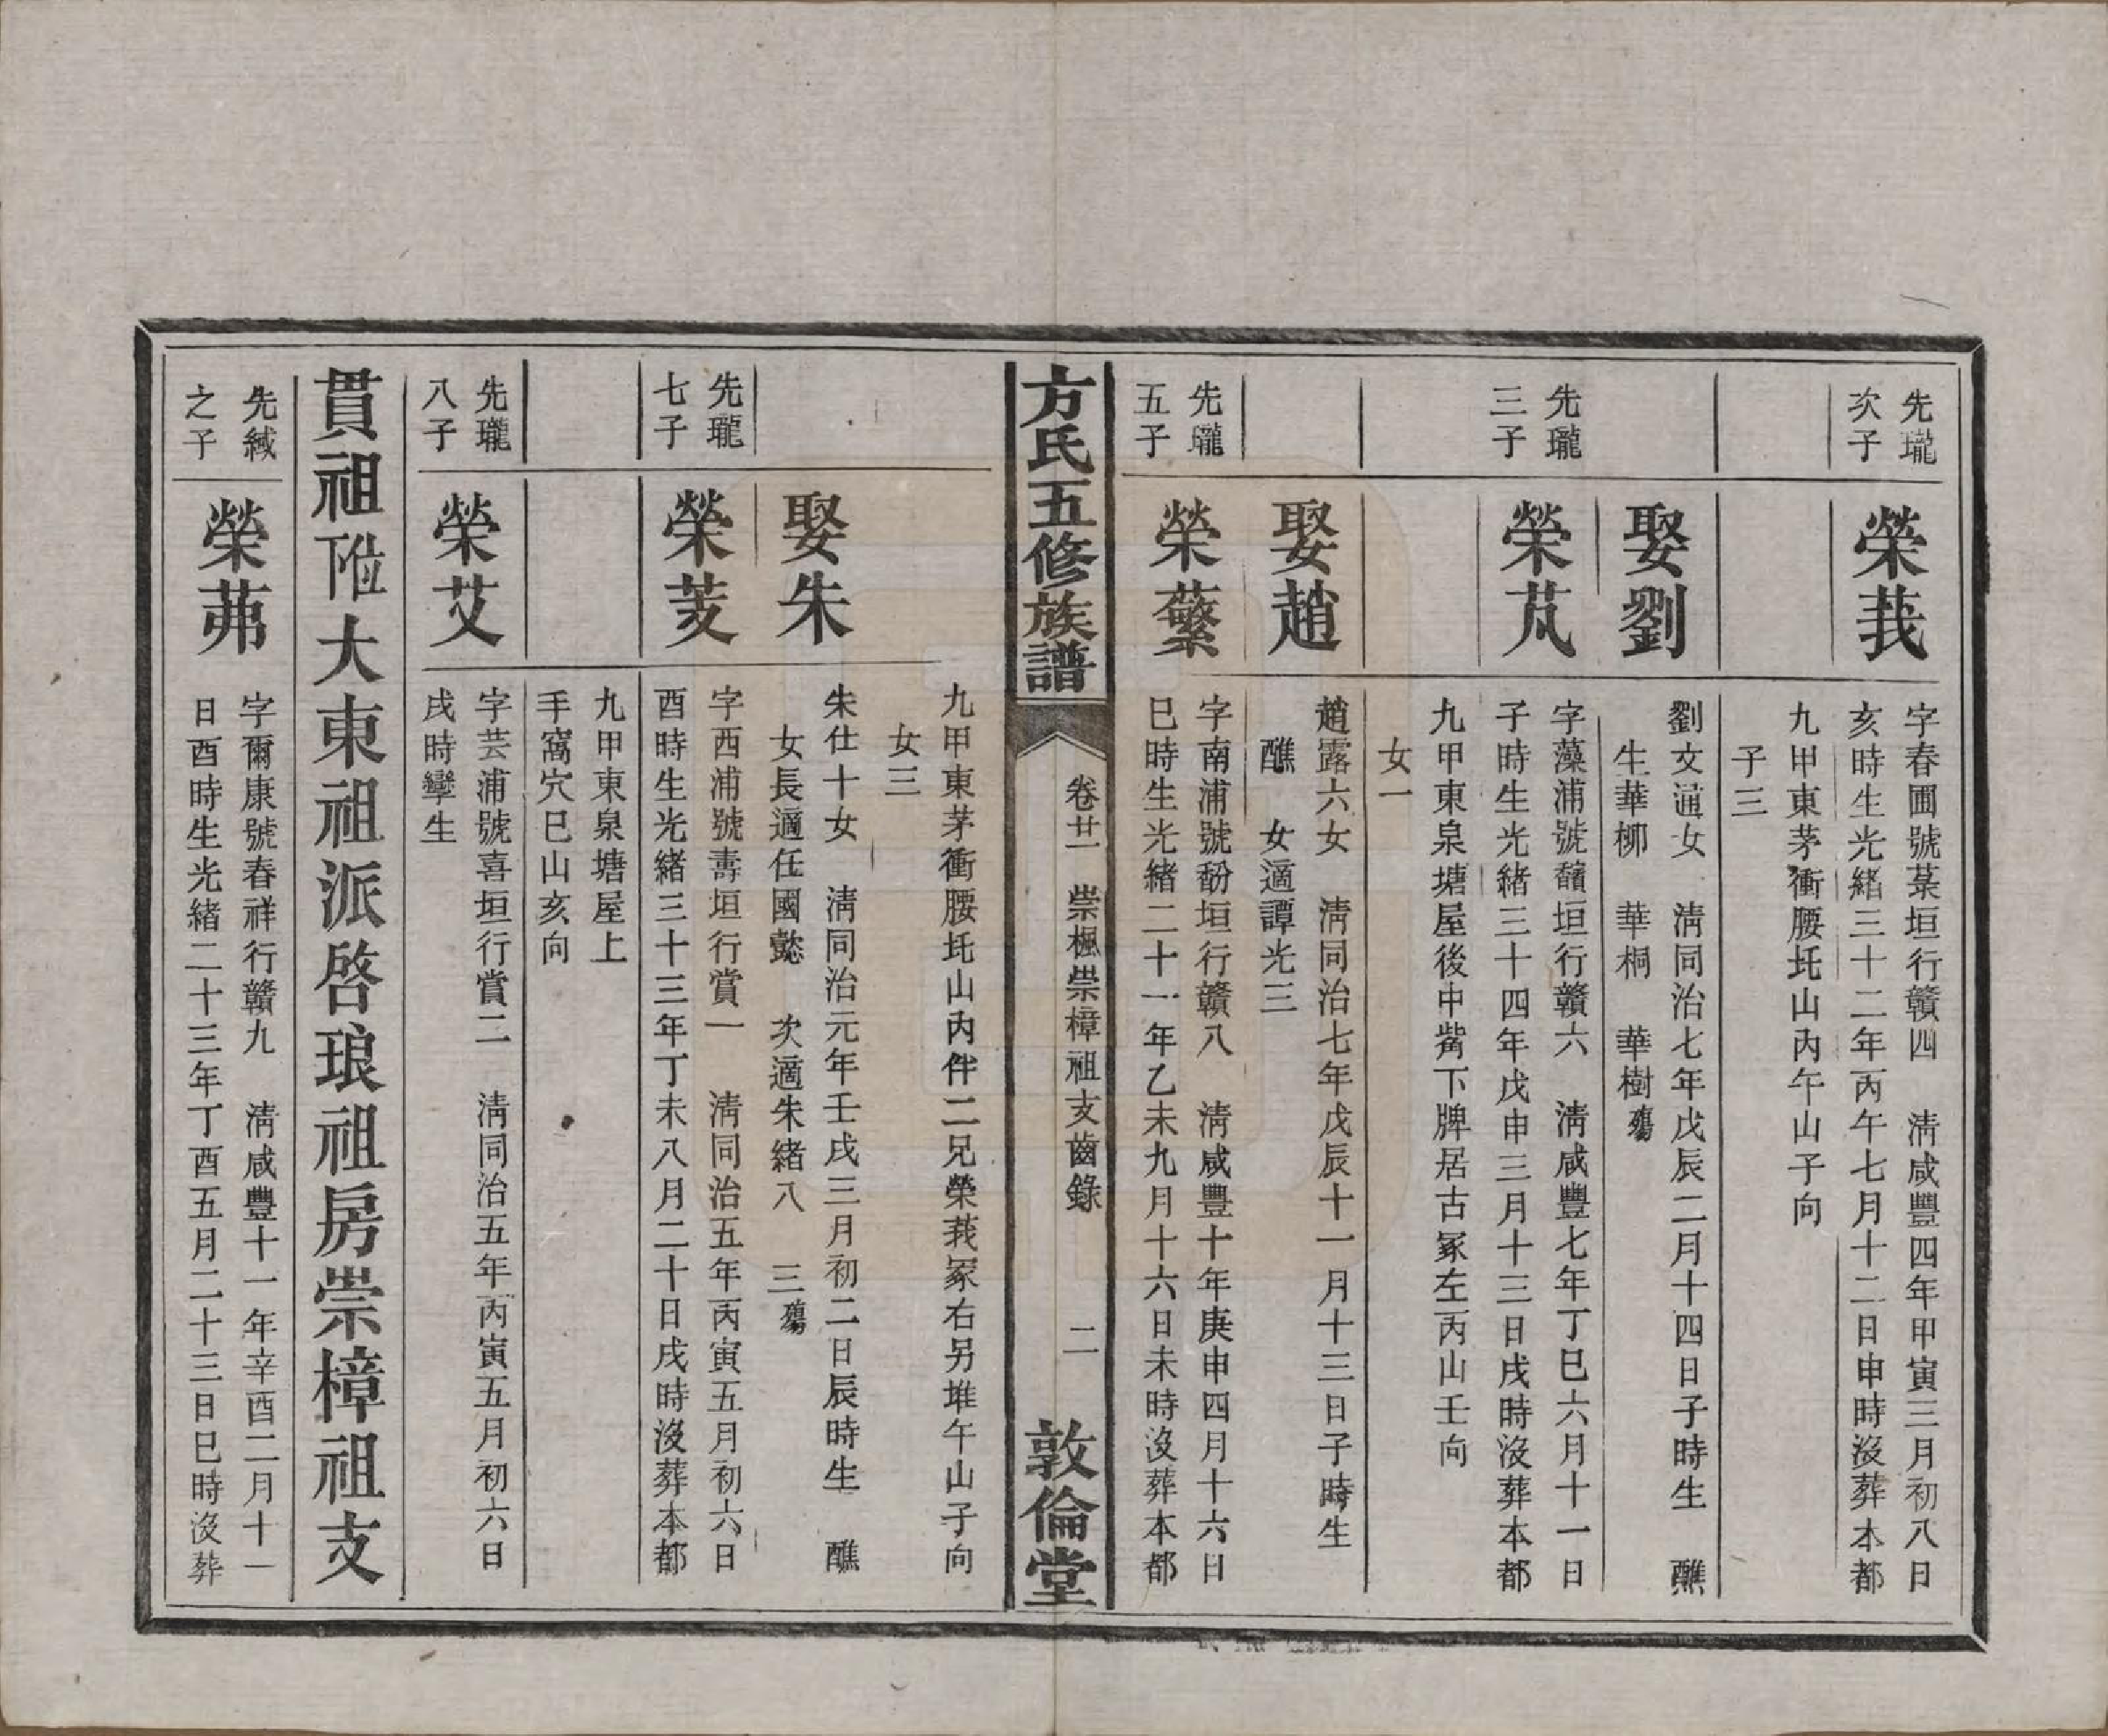 先瓏
次子
榮莪
字春圃號菜垣行贛四　清咸豐四年甲寅三月初八日
亥時生光緒三十二年丙午七月十二日申時沒葬本都
九甲東茅衝腰坉山內午山子向
子三
娶劉
劉文通女　清同治七年戊辰二月十四日子時生　醮
生華柳　華桐　華樹殤
先瓏
三子
榮芃
字藻浦號馩垣行贛六　清咸豐七年丁巳六月十一日
子時生光緒三十四年戊申三月十三日戌時沒葬本都
九甲東泉塘屋後中嘴下牌居古冢左丙山壬向
女一
娶趙
趙露六女　清同治七年戊辰十一月十三日子時生
醮　女適譚光三
先瓏
五子
榮蘩
字南浦號馚垣行贛八　清咸豐十年庚申四月十六日
巳時生光緒二十一年乙未九月十六日未時沒葬本都
方氏五修族譜
卷廿一　崇楓崇樟祖支齒錄　二
敦倫堂
九甲東茅衝腰坉山內伴二兄榮莪冢右另堆午山子向
女三
娶朱
朱仕十女　清同治元年壬戌三月初二日辰時生　醮
女長適任國懿　次適朱緒八　三殤
先瓏
七子
榮芰
字西浦號壽垣行賞一　清同治五年丙寅五月初六日
酉時生光緒三十三年丁未八月二十日戌時沒葬本都
九甲東泉塘屋上
手窩穴巳山亥向
先瓏
八子
榮艾
字芸浦號喜垣行賞二　清同治五年丙寅五月初六日
戌時孿生
貫祖位下大東祖派啓琅祖房崇樟祖支
先緎
之子
榮茀
字爾康號春祥行贛九　清咸豐十一年辛酉二月十一
日酉時生光緒二十三年丁酉五月二十三日巳時沒葬